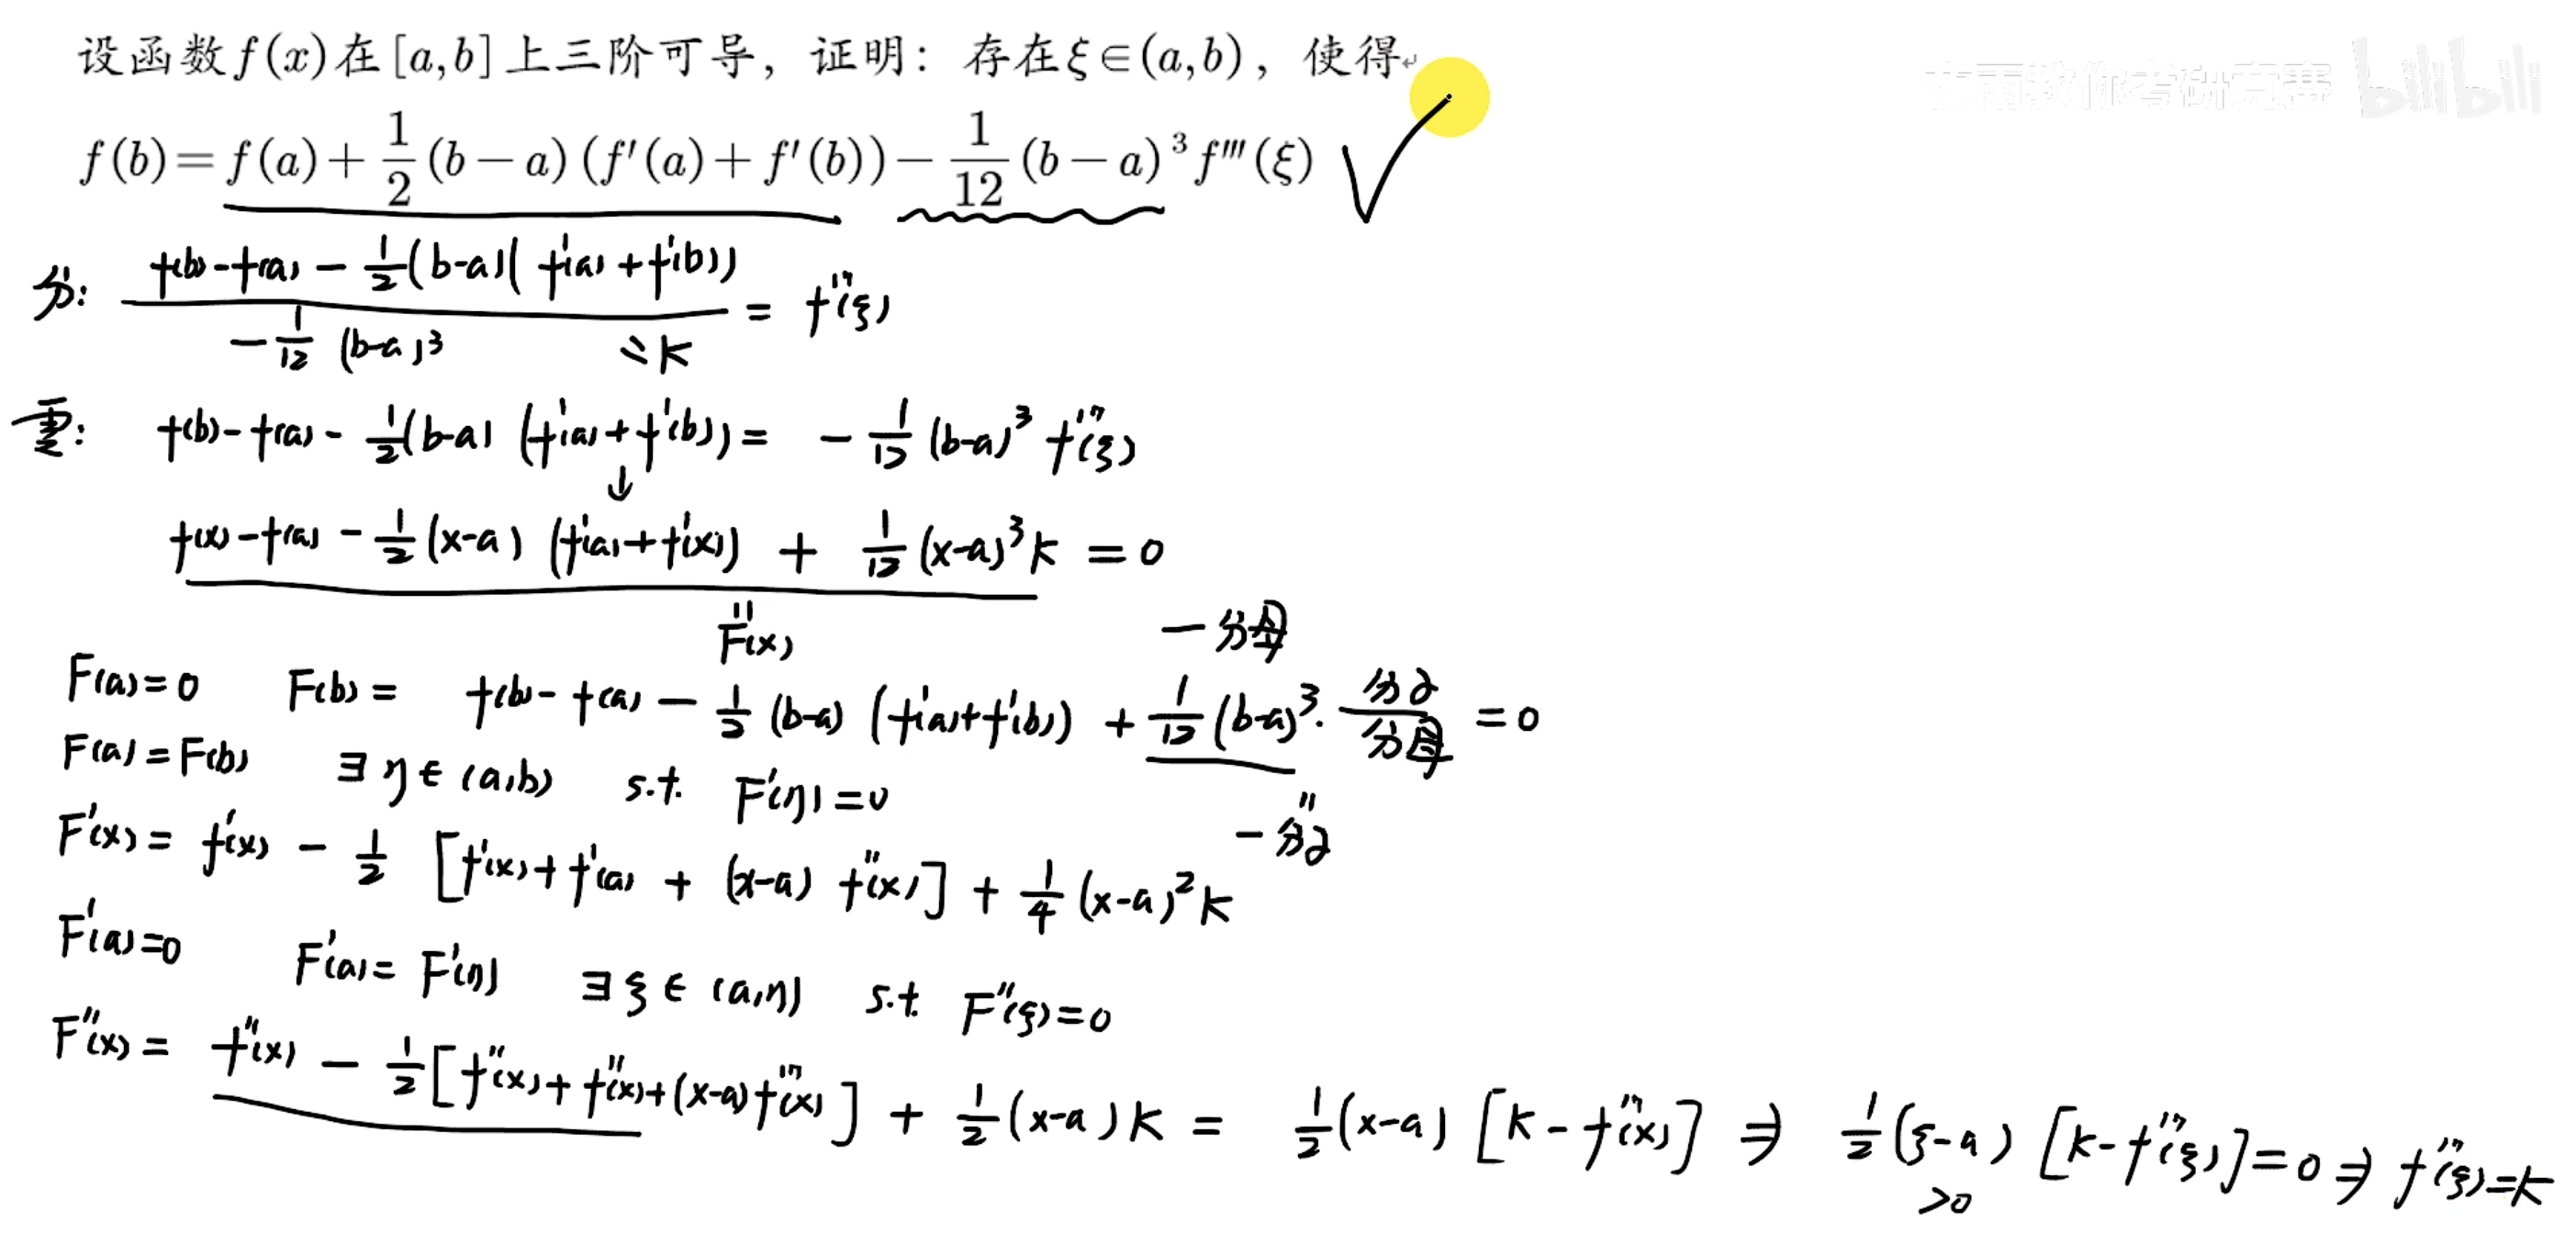 设函数f(x)在[a,b]上三阶可导，证明：存在ξ∈(a,b)，使得
f(b)=f(a)+\frac{1}{2}(b-a)(f'(a)+f'(b))-\frac{1}{12}(b-a)^3f'''(ξ)
教你考研竞赛 bilibili
分: \frac{f(b)-f(a)-\frac{1}{2}(b-a)(f'(a)+f'(b))}{-\frac{1}{12}(b-a)^3} = f'''(ξ)
=K
f(b)-f(a)-\frac{1}{2}(b-a)(f'(a)+f'(b))= -\frac{1}{12}(b-a)^3f'''(ξ)
↓
f(x)-f(a)-\frac{1}{2}(x-a)(f'(a)+f'(x)) + \frac{1}{12}(x-a)^3K = 0
"
F(x)
-分母
F(a)=0 F(b)= f(b)-f(a)-\frac{1}{2}(b-a)(f'(a)+f'(b)) + \frac{1}{12}(b-a)^3·\frac{分子}{分母} = 0
"
-分子
F(a)=F(b) ∃η∈(a,b) s.t. F'(η)=0
F'(x)= f'(x) - \frac{1}{2}[f'(x)+f'(a)+(x-a)f''(x)] + \frac{1}{4}(x-a)^2K
F'(a)=0 F'(a)=F'(η) ∃ξ∈(a,η) s.t. F''(ξ)=0
F''(x)= f''(x) - \frac{1}{2}[f''(x)+f''(x)+(x-a)f'''(x)] + \frac{1}{2}(x-a)K = \frac{1}{2}(x-a)[K-f'''(x)] ⇒ \frac{1}{2}(ξ-a)[K-f'''(ξ)]=0⇒f'''(ξ)=K
>0